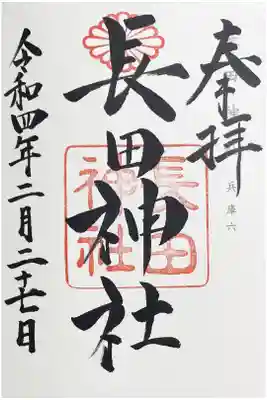 奉拝
兵庫六
長田神社
長田
神社
令和四年二月二十七日